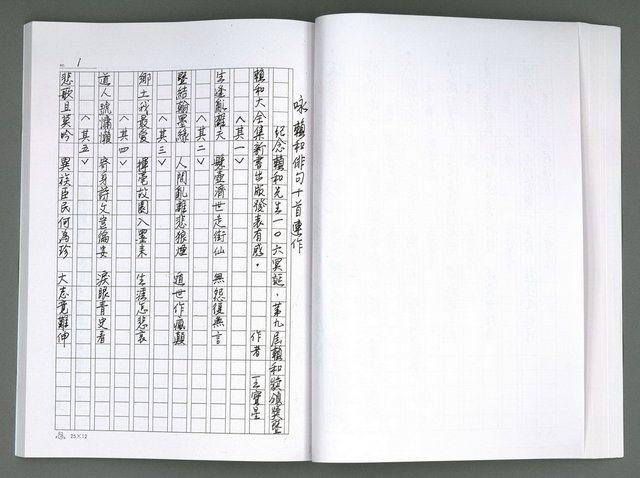 咏賴和俳句十首連作
紀念賴和先生一0六冥誕,第九屆賴和獎頒獎暨
賴和大全集新書出版發表有感。 作者 王寶星
<其一>
生逢亂離天 懸壺濟世走街仙 無怨復無言
<其二>
堅結翰墨緣 人間亂離悲狼煙 遁世作瘋顛
<其三>
鄉土我最愛 揮毫故園入墨來 生癆怎悲哀
<其四>
道人號慵懶 寄身詩文豈偏安 淚眼青史看
<其五>
悲歌且莫吟 異族臣民何為珍 大志竟難伸
1
25×12